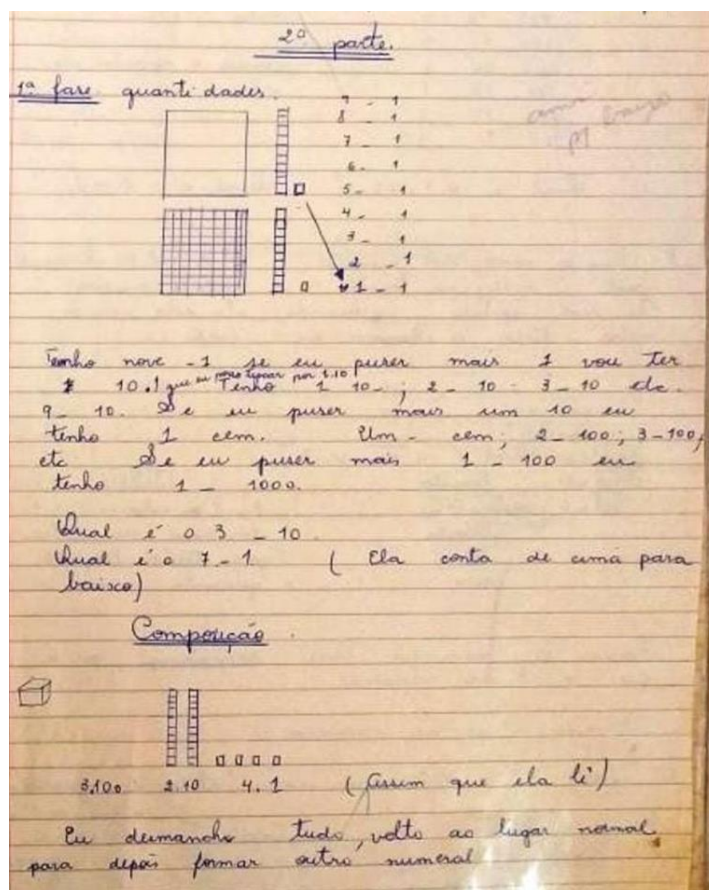 2ª parte.
1ª fase quantidades.
9 - 1
8 - 1
7 - 1
6 - 1
5 - 1
4 - 1
3 - 1
2 - 1
1 - 1
Tenho nove - 1 se eu puser mais 1 vou ter
10.1 que eu posso trocar por 1.10 Tenho 1 10 - ; 2 - 10 - 3 - 10 etc.
9 - 10. Se eu puser mais um 10 eu
tenho 1 cem. Um - cem; 2 - 100; 3 - 100;
etc Se eu puser mais 1 - 100 eu
tenho 1 - 1000.
Qual é o 3 - 10
Qual é o 7 - 1 ( Ela conta de cima para
baixo)
Composição.
3.100 2.10 4.1 (Assim que ela lê)
Eu desmancho tudo, volto ao lugar normal
para depois formar outro numeral